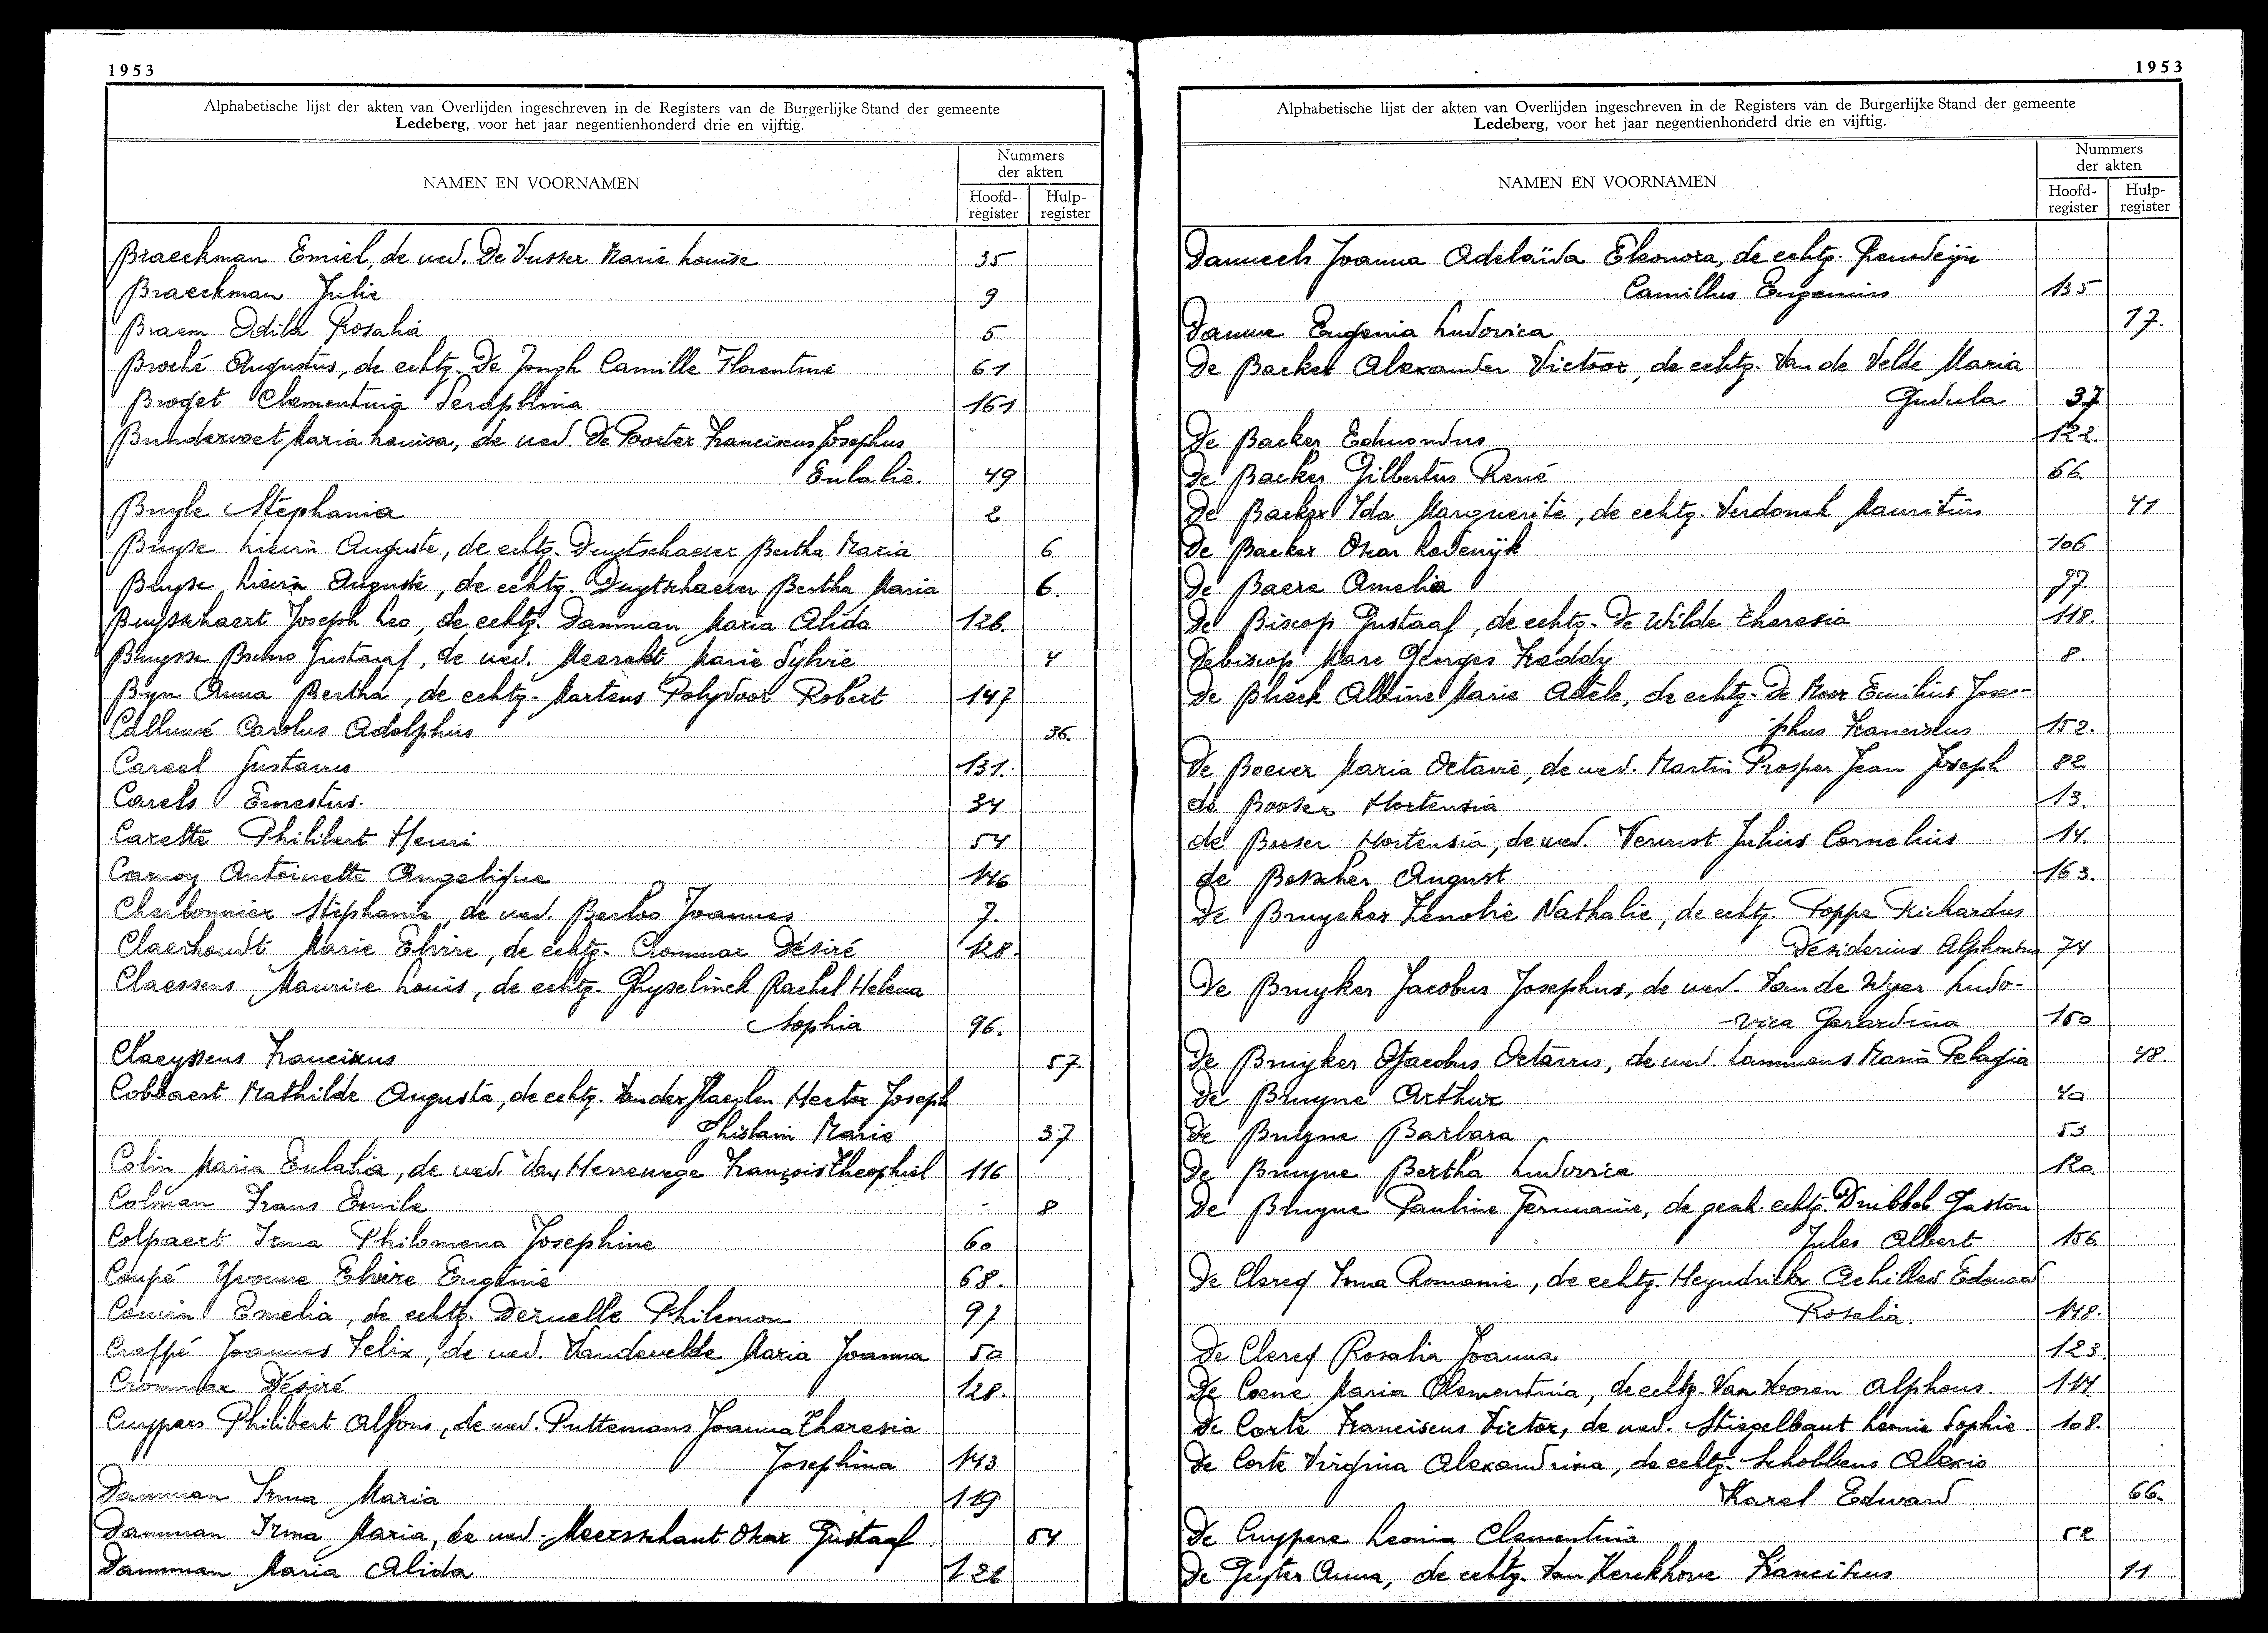 1953
Alphabetische lijst der akten van Overlijden ingeschreven in de Registers van de Burgerlijke Stand der gemeente
Ledeberg, voor het jaar negentienhonderd drie en vijftig.
NAMEN EN VOORNAMEN
Nummers
der akten
Hoofd-
register
Hulp-
register
Braeckman Emiel, de wed. De Vusser Marie Louise 35
Braeckman Julie 9
Braem Odila Rosalia 5
Broché Augustus, de echtg. De Jongh Camille Florentine 61
Broget Clementina Seraphina 161
Bunderwoet Maria Louisa, de wed. De Poorter Franciscus Josephus
Eulalie. 49
Buyle Stephania 2
Buyse Lievin Auguste, de echtg. Duytschaever Bertha Maria 6
Buyse Lievin Auguste, de echtg. Duytschaever Bertha Maria 6.
Buysschaert Joseph Leo, de echtg. Damman Maria Alida 126.
Buysse Bruno Gustaaf, de wed. Meerakt Marie Sylvie 4
Byn Anna Bertha, de echtg. Martens Polydoor Robert 147
Calluwé Carolus Adolphus 36.
Careel Gustavus 131.
Carels Ernestus. 34
Carette Philibert Henri 54
Carnoy Antoinette Angelique 146
Cherbonnier Stéphanie, de wed. Berloo Joannes 7.
Claerhoudt Marie Elvire, de echtg. Crommar Désiré 128.
Claessens Maurice Louis, de echtg. Ghyselinck Rachel Helena
Sophia 96.
Claeyssens Franciscus 57.
Cobbaert Mathilde Augusta, de echtg. Vander Haeghen Hector Joseph
Ghislain Marie 37
Colin Maria Eulalia, de wed. Van Herrewege François Theophiel 116
Colman Frans Emile 8
Colpaert Irma Philomena Josephine 60
Coupé Yvonne Elvire Eugénie 68.
Couvin Emelia, de echtg. Deruelle Philemon 97
Craffé Joannes Felix, de wed. Vandevelde Maria Joanna 50
Crommar Désiré 128.
Cuypers Philibert Alfons, de wed. Puttemans Joanna Theresia
Josephina 143
Damman Irma Maria 119
Damman Irma Maria, de wed. Meersschaut Oskar Gustaaf 54
Damman Maria Alida 126
1953
Alphabetische lijst der akten van Overlijden ingeschreven in de Registers van de Burgerlijke Stand der gemeente
Ledeberg, voor het jaar negentienhonderd drie en vijftig.
NAMEN EN VOORNAMEN
Nummers
der akten
Hoofd-
register
Hulp-
register
Danneels Joanna Adelaïda Eleonora, de echtg. Renodeyn
Camillus Eugenius 135
Danne Eugenia Ludovica 17.
De Backer Alexander Victoor, de echtg. Van de Velde Maria
Gudula 37
De Backer Edmondus 122.
De Backer Gilbertus René 66.
De Backer Ida Marguerite, de echtg. Verdonck Mauritius 41
De Backer Oscar Lodewijk 106
De Baere Amelia 77
De Biscop Gustaaf, de echtg. De Wilde Theresia 118.
Debiscop Marc Georges Freddy 8.
De Bleeck Albine Marie Adèle, de echtg. De Moor Emilius Jose-
phus Franciscus 152.
De Boever Maria Octavie, de wed. Martin Prosper Jean Joseph 82
de Booser Hortensia 13.
de Booser Hortensia, de wed. Verurst Julius Cornelius 14.
de Bosscher August 163.
De Bruycker Zenobie Nathalie, de echtg. Poppe Richardus
Desiderius Alphonsus 74
De Bruyker Jacobus Josephus, de wed. Van de Wyer Ludo-
-vica Gerardina 150
De Bruyker Jacobus Octavus, de wed. Lammens Maria Pelagia 48.
De Bruyne Arthur 40
De Bruyne Barbara 53
De Bruyne Bertha Ludovica 120.
De Bruyne Pauline Germanie, de gesch. echtg. Drubbel Gaston
Jules Albert 156
De Clercq Irma Romanie, de echtg. Heyndrickx Achilles Edouard
Rosalia. 148.
De Clercq Rosalia Joanna 123
De Coene Maria Clementina, de echtg. Van Vooren Alphons. 114
De Corte Franciscus Victor, de wed. Stiegelbaut Leonie Sophie. 108.
De Corte Virginia Alexandrina, de echtg. Schobbens Alexis
Karel Edward 66.
De Cuypere Leonia Clementina 52
De Geyter Anna, de echtg. Van Kerckhove Franciscus 11